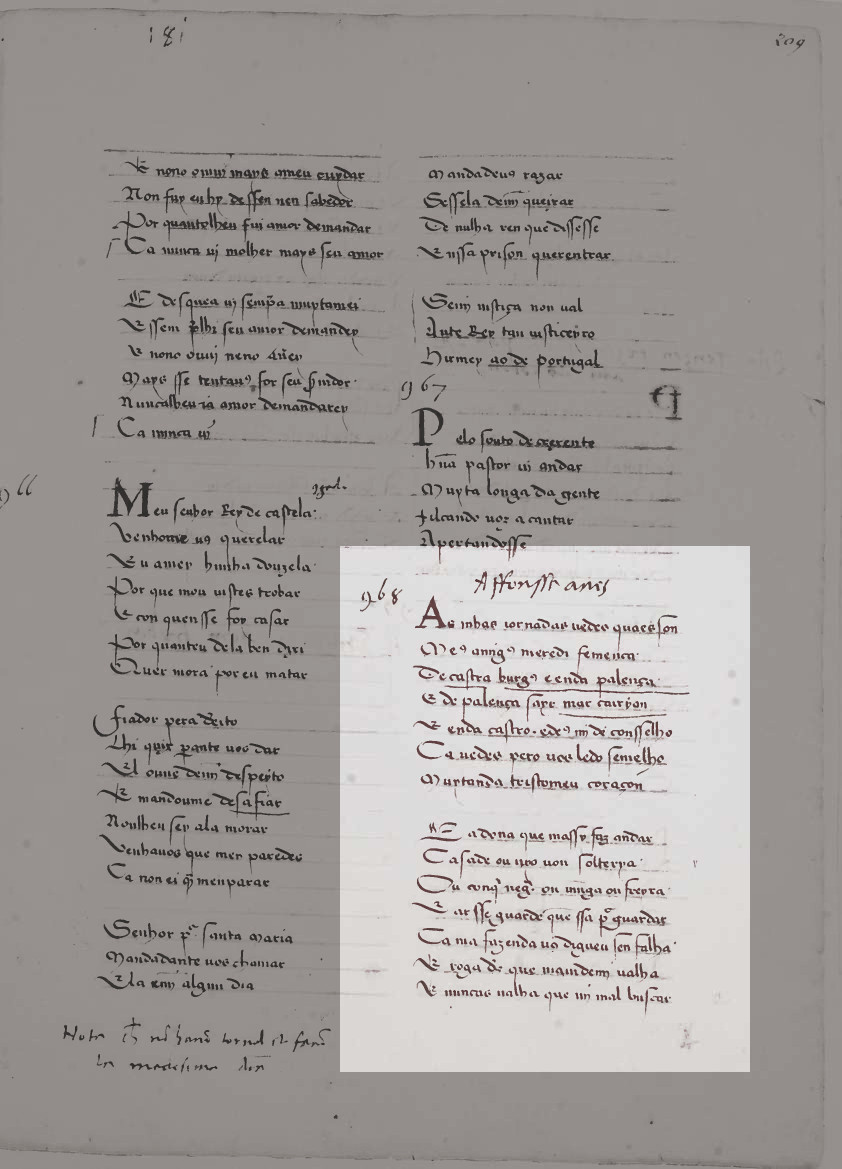 181
209
E nono ouui mays ameu cuydar
Non fuy eu hy dessen nen sabedor
Por quantolheu fui amor demandar
Ca nunca ui molher mays seu amor
E des quea ui semp̃a muytamei
E nono ouui neno
Mays sse
Nuncalheu ia amor demandarey
Ca nunca ui
966
Meu senhor Rey de castela
Venhome uꝯ querelar
Eu amey hunha donzela
Por que mou uistes trobar
E con quensse foy casar
Por quanteu dela ben dixi
Quer mora por en matar
Fiador pera dereito
Lhi quix ꝑante uos dar
El ouue demi despeyto
E mandoume desafiar
Noulheu sey ala morar
Venhauos que mer paredes
Ca non ei q̃ menparar
Senhor santa Maria
Mandadante uos chamar
Ela algun dia
Nota
Mandadeuꝯ razar
Sessela demi queixar
De nulha ren que dissesse
En ssa prison querentrar
Semi iustiça non ual
Ante Rey tan iusticeyro
Hirmey ao de portugal
967
Pelo souto de crexente
hũa pastor ui andar
Muyta longada gente
Alcando uoz a cantar
Apertandosse
968
Affonsse anes
As mhas iornadas uedes quaes son
Meꝯ amigꝯ meredi femença
De castra burgꝯ e enda palença
E de palença sayr mac carrion
E enda castro. e deꝯ mi de consselho
Ca uedes pero uos ledo semelho
Muytanda tristomeu coraçon
E a dona que massy faz andar
Casade ou uiuuon solteyra
Ou touq̃ negra ou mõia ou freyra
E ar sse guarde que ssa per guardar
Ca ma fazenda uꝯ digueu sen falha
E roga ds que maiudem ualha
E nuncas ualha que mi mal buscar